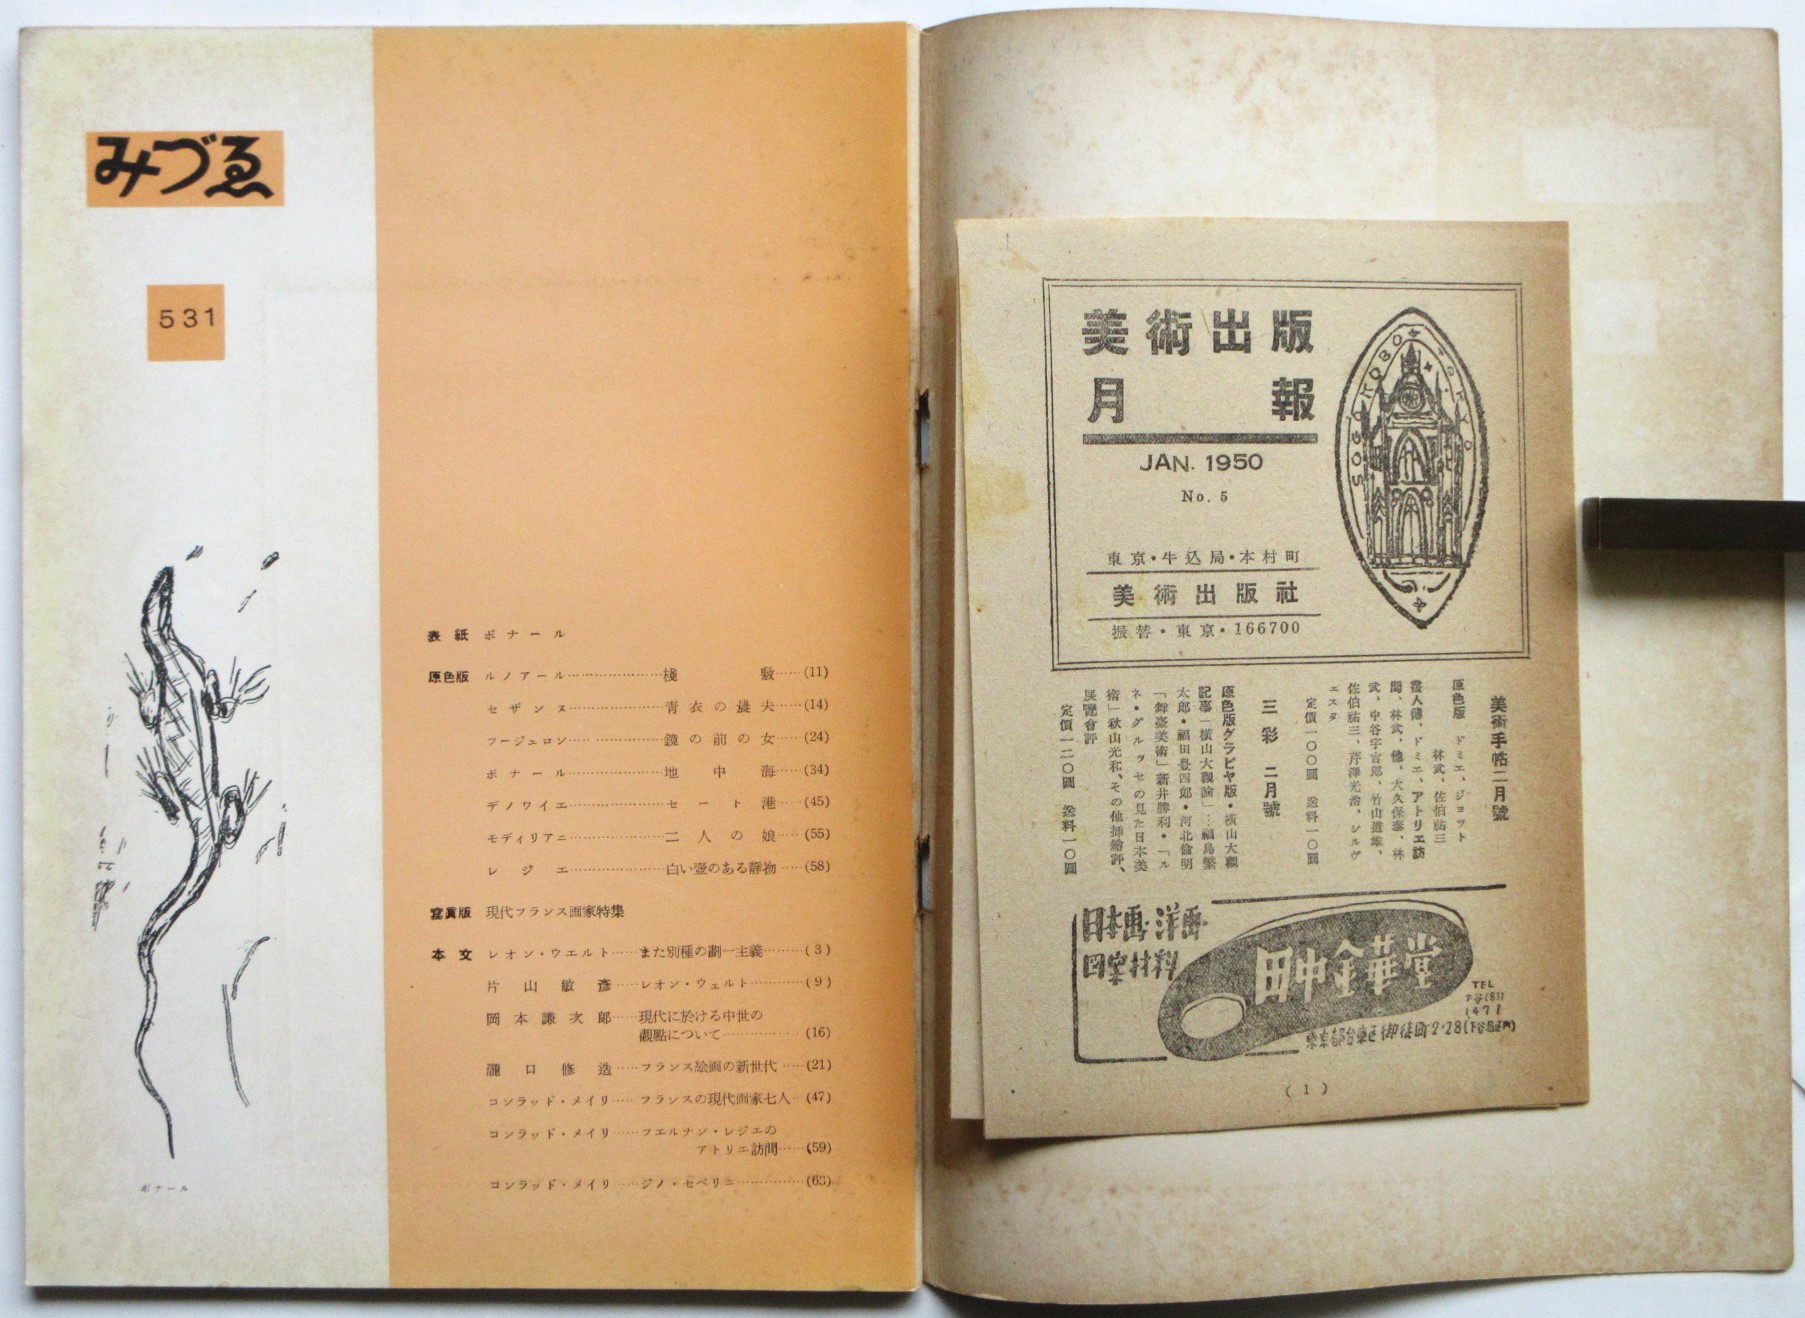 みづゑ
531
ボナール
表紙 ボナール
原色版 ルノアール……棧敷……(11)
セザンヌ……青衣の農夫……(14)
フージュロン……鏡の前の女……(24)
ボナール……地中海……(34)
デノワイエ……セート港……(45)
モディリアニ……二人の娘……(55)
レジエ……白い壺のある靜物……(58)
寫眞版 現代フランス画家特集
本文 レオン・ウエルト……また別種の劃一主義……(3)
片山敏彦……レオン・ウェルト……(9)
岡本謙次郎……現代に於ける中世の
觀點について……(16)
瀧口修造……フランス絵画の新世代……(21)
コンラッド・メイリ……フランスの現代画家七人…(47)
コンラッド・メイリ……フエルナン・レジエの
アトリエ訪問……(59)
コンラッド・メイリ……ジノ・セベリニ……(63)
美術出版
月報
JAN. 1950
No. 5
東京・牛込局・本村町
美術出版社
振替・東京・166700
SOGO KOBO TOKYO
美術手帖二月號
原色版 ドミエ、ジョット
林武、佐伯祐三
畫人傳、ドミエ、アトリエ訪
問、林武、他、大久保泰、林
武、中谷宇吉郎、竹山道雄、
佐伯祐三、芹澤光治、シルヴ
ェスタ
定價一〇〇圓 送料一〇圓
三彩 二月號
原色版グラビヤ版・横山大觀
記事「横山大觀論」…福島繁
太郎・福田豊四郎・河北倫明
「舞臺美術」新井勝利・「ル
ネ・グルッセの見た日本美
術」秋山光和、その他挿繪評、
展覽會評
定價一二〇圓 送料一〇圓
日本画・洋画・
図案材料
田中金華堂
TEL
下谷(83)
1471
東京都台東区御徒町2-28
(1)